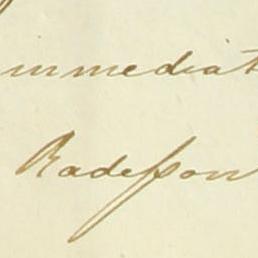 immediat
Radeſson